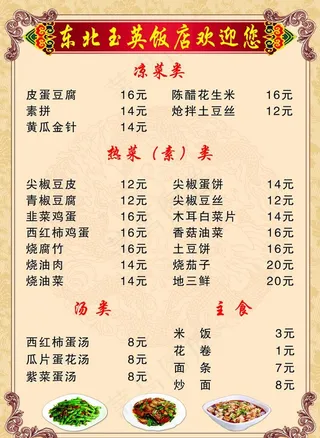 东北玉英饭店欢迎您
凉菜类
皮蛋豆腐 16元 陈醋花生米 16元
素拼 14元 炝拌土豆丝 12元
黄瓜金针 14元
热菜（素）类
尖椒豆皮 12元 尖椒蛋饼 14元
青椒豆腐 12元 尖椒豆丝 12元
韭菜鸡蛋 16元 木耳白菜片 14元
西红柿鸡蛋 16元 香菇油菜 16元
烧腐竹 16元 土豆饼 16元
烧油肉 14元 烧茄子 20元
烧油菜 14元 地三鲜 20元
汤类 主食
西红柿蛋汤 8元 米饭 3元
瓜片蛋花汤 8元 花卷 1元
紫菜蛋汤 8元 面条 7元
炒面 8元